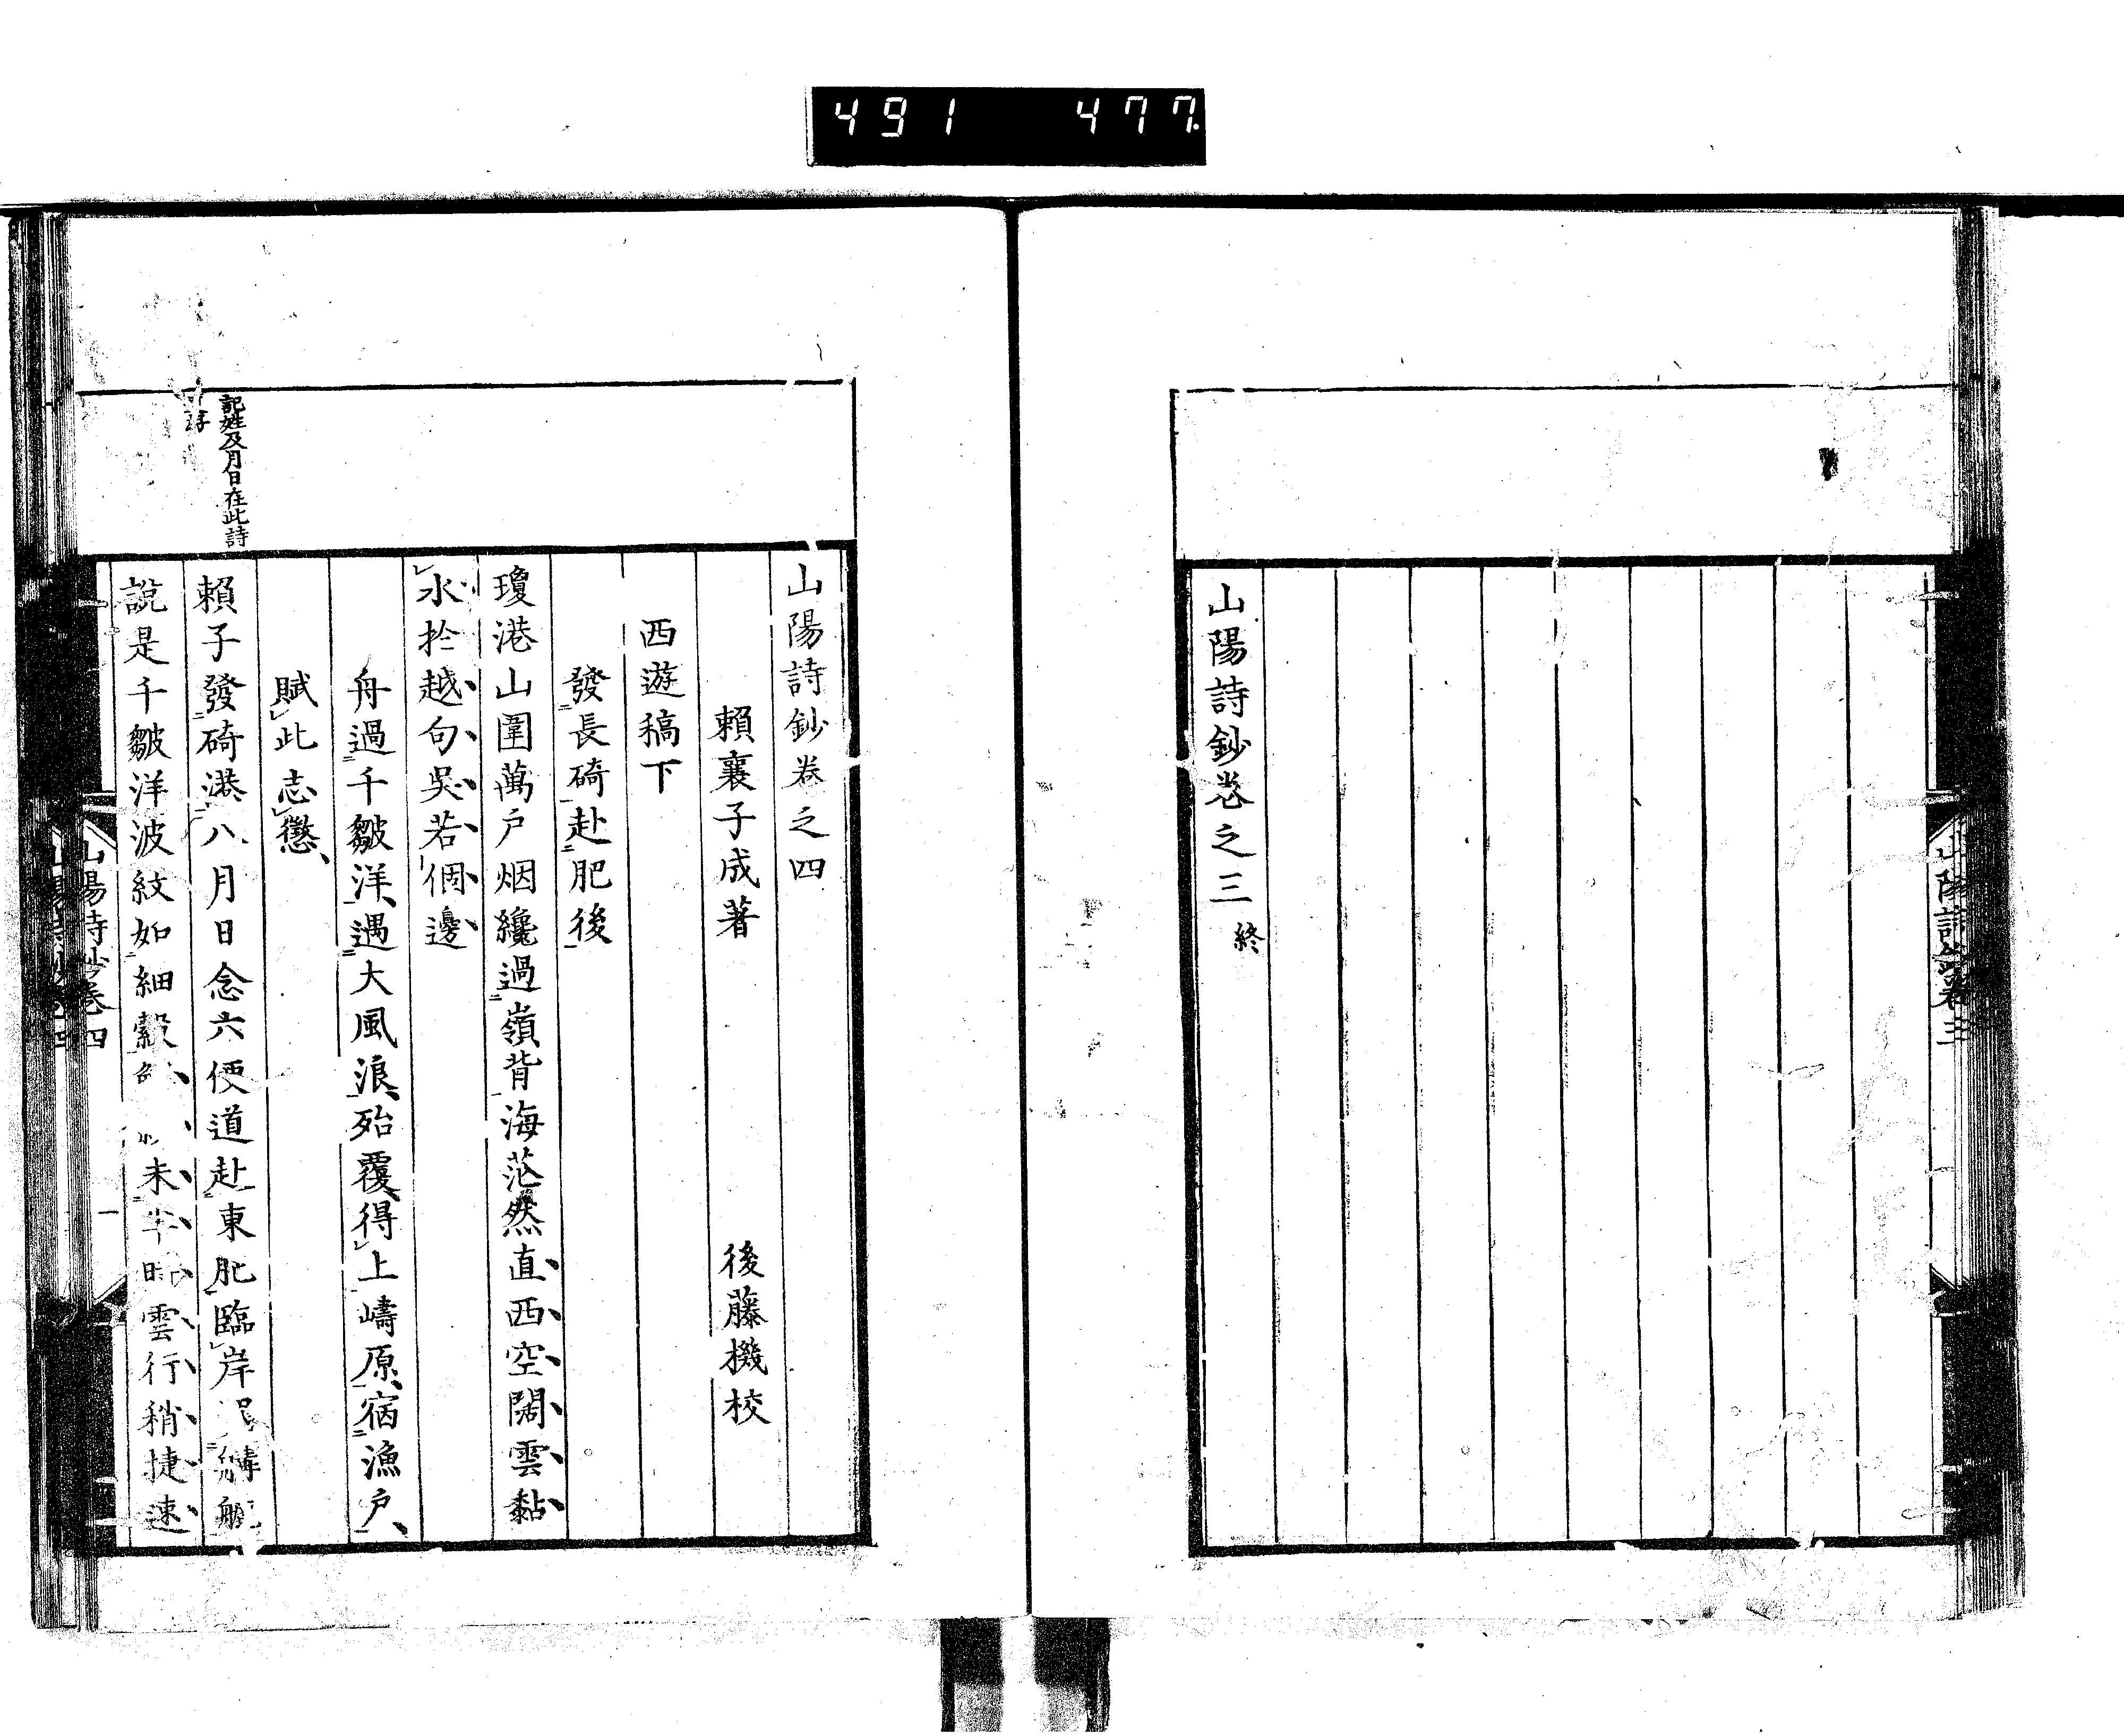 491 477
山陽詩鈔卷之三 終
山陽詩鈔卷三
山陽詩鈔卷之四
賴襄子成著 後藤機校
西遊稿下
發長碕赴肥後
瓊港山圍萬戶烟纔過嶺背海茫然直西空闊雲黏
水於越句吳若個邊
舟過千皺洋遇大風浪殆覆得上嶹原宿漁戶
賦此志懲
記姓及月日在此詩
賴子發碕港八月日念六便道赴東肥臨岸舣
說是千皺洋波紋如細縠未半雲行稍捷速
山陽詩鈔卷四
一